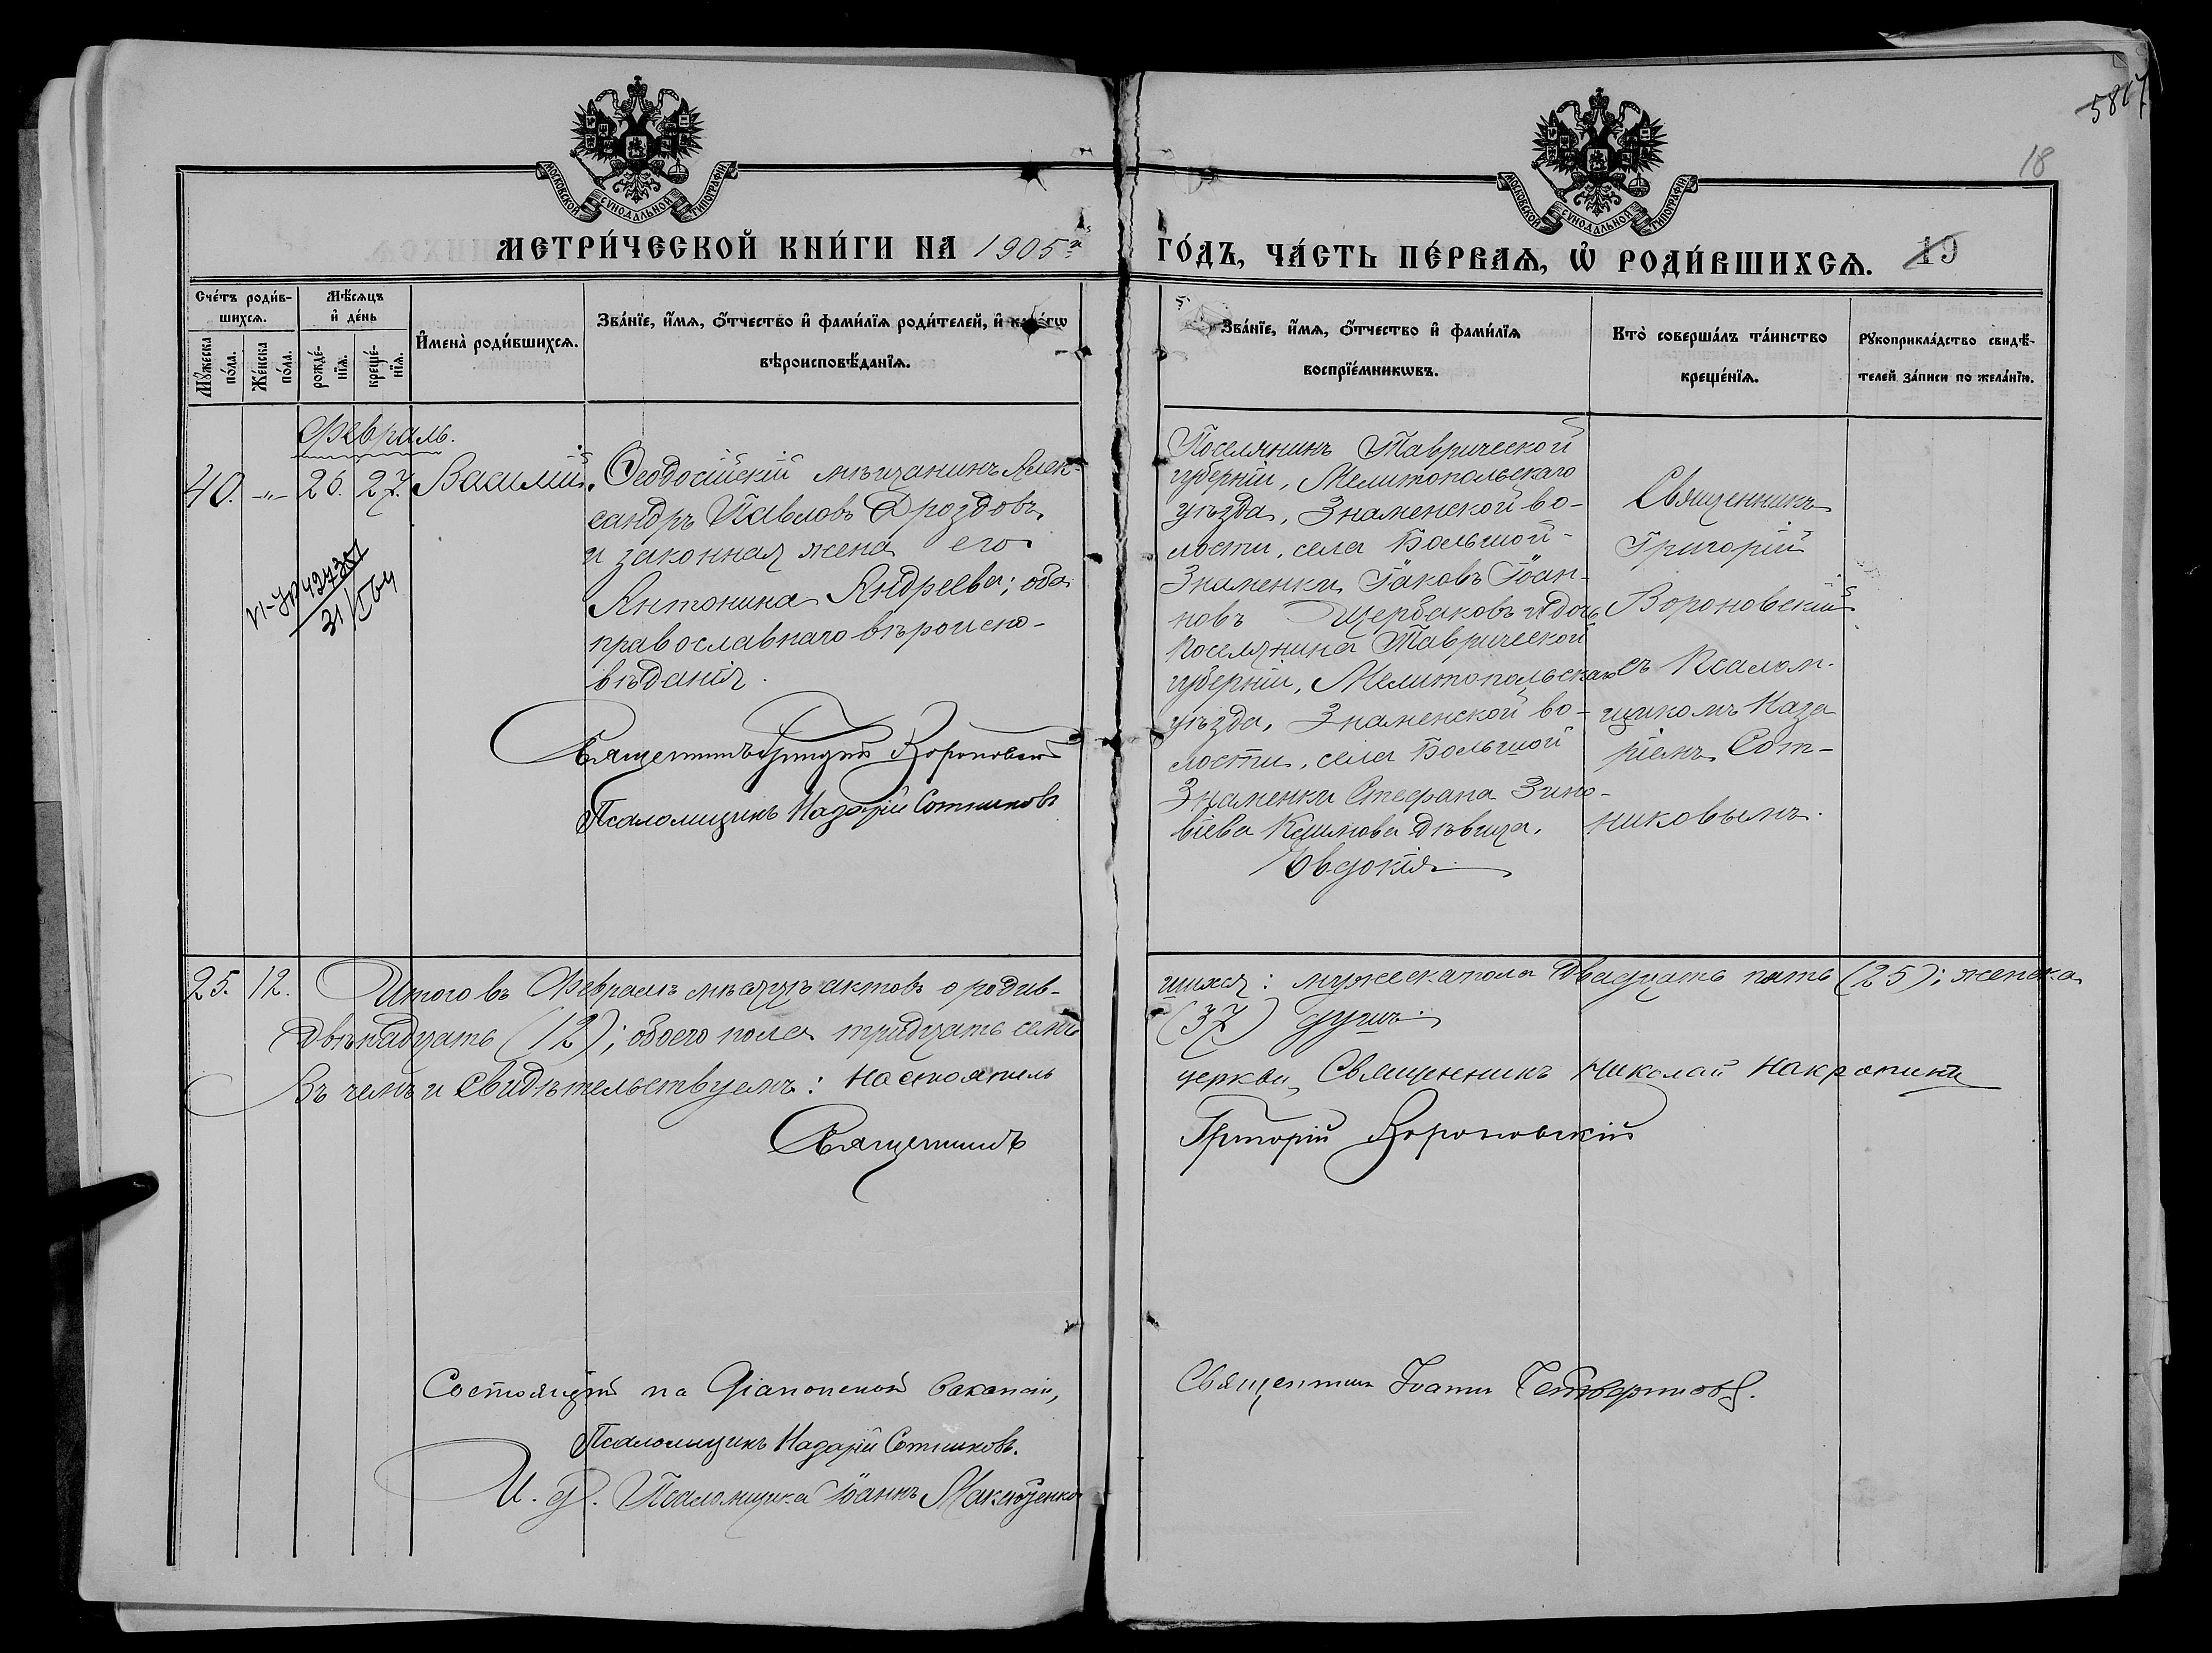 5817
18
МОСКОВСКОЙ СУНОДАЛЬНОЙ ТИПОГРАФІИ
МОСКОВСКОЙ СУНОДАЛЬНОЙ ТИПОГРАФІИ
МЕТРИ́ЧЕСКОЙ КНИ́ГИ НА 1905 г.
ГО́ДЪ, ЧА́СТЬ ПЕ́РВАѦ, Ѡ҆ РОДИ́ВШИХСѦ.
19
Сче́тъ роди́в-
шихсѧ.
Мꙋ́жеска
по́ла.
Же́нска
по́ла.
Мѣ́сѧцъ
и҆ де́нь
рожде́-
нїѧ.
креще́-
нїѧ.
И҆мена̀ роди́вшихсѧ.
Зва́нїе, и҆́мѧ, ѻ҆́тчество и҆ фами́лїѧ роди́телей, и҆ како́гѡ
вѣроисповѣ́данїѧ.
Зва́нїе, и҆́мѧ, ѻ҆́тчество и҆ фами́лїѧ
воспрїе́мникѡвъ.
Кто̀ соверша́лъ та́инство
креще́нїѧ.
Рꙋкоприкла́дство свидѣ́-
телей за́писи по жела́нїю.
Февраль.
40. -"- 26. 27. Василій.
Ѳеодосійскій мѣщанинъ Алек-
сандръ Павловъ Дроздовъ
и законная жена его
Антонина Андреева; оба
православнаго вѣроиспо-
вѣданія.
Священникъ Григорій Вороновскій
Псаломщикъ Назарій Сотниковъ
31/
Поселянинъ Таврической
губерніи, Мелитопольскаго
уѣзда, Знаменской во-
лости, села Большой-
Знаменки Іаковъ Іоан-
новъ Щербаковъ и дочь
поселянина Таврической
губерніи, Мелитопольскаго
уѣзда, Знаменской во-
лости, села Большой
Знаменки Стефана Зино-
віева дѣвица
Евдокія
Священникъ
Григорій
Вороновскій
съ Псалом-
щикомъ Наза
ріемъ Сот-
никовымъ.
25. 12. Итого въ Февралѣ мѣсяцѣ актовъ о родив-
шихся: мужеска пола двадцать пять (25); женска
двѣнадцать (12); обоего пола тридцать семь
(37) душъ.
Въ чемъ и свидѣтельствуемъ: Настоятель
церкви, Священникъ Николай
Священникъ
Григорій Вороновскій
Состоящій на Діаконской вакансіи,
Священникъ Іоаннъ Четвериковъ.
Псаломщикъ Назарій Сотниковъ.
И. д. Псаломщика Іоаннъ